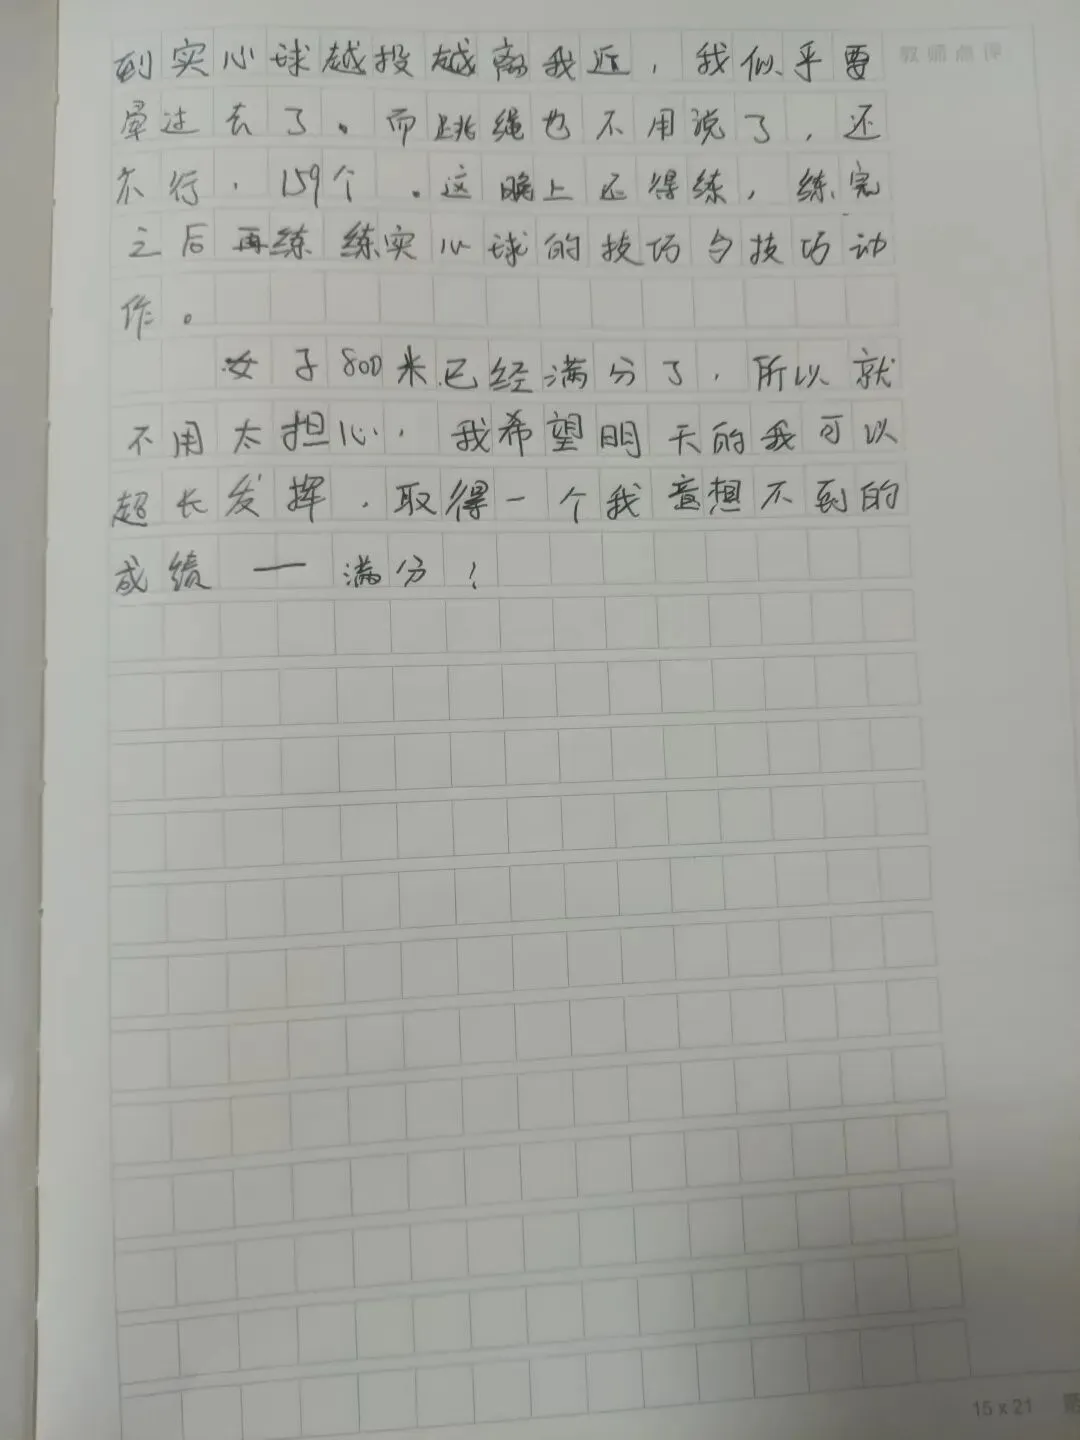 到实心球越投越离我近，我似乎要
教师点评
晕过去了。而跳绳也不用说了，还
不行，159个。这晚上还得练，练完
之后再练练实心球的技巧与技巧动
作。
女子800米已经满分了，所以就
不用太担心，我希望明天的我可以
超长发挥，取得一个我意想不到的
成绩——满分！
15×21